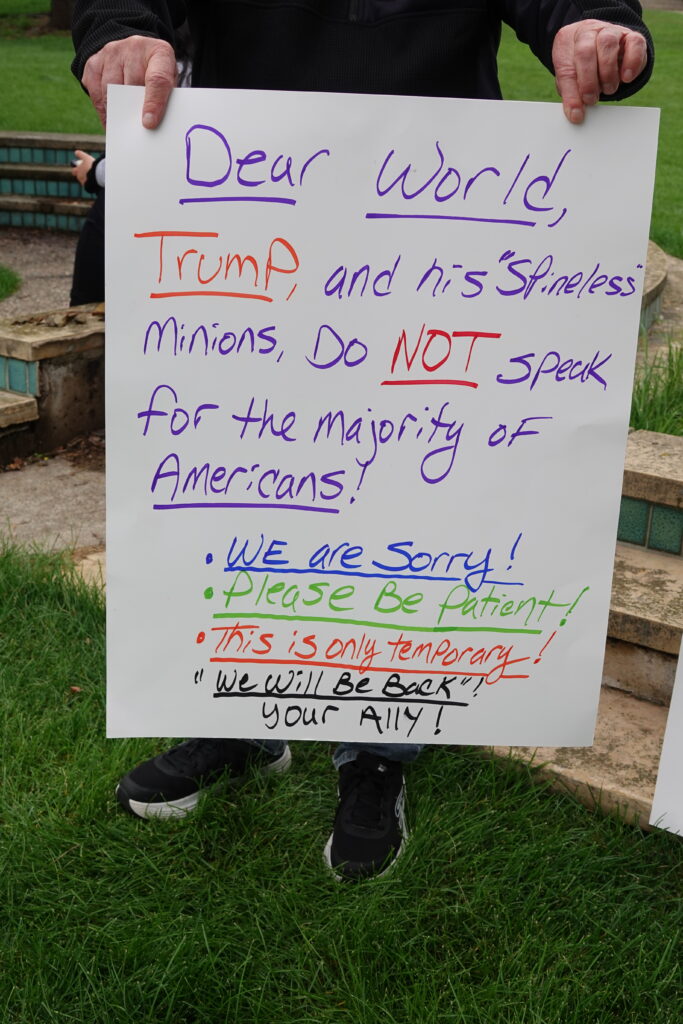 Dear World,
Trump, and his "Spineless"
Minions, Do NOT speak
for the majority of
Americans!
• WE are Sorry!
• Please Be Patient!
• This is only temporary!
"We Will Be Back"!
Your Ally!